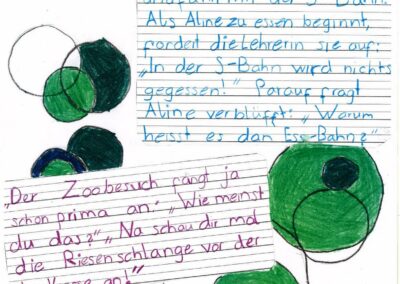 mit der S-Bahn.
Als Aline zu essen beginnt,
fordert die Lehrerin sie auf:
„In der S-Bahn wird nichts
gegessen!" Darauf fragt
Aline verblüfft: „Warum
heisst es dan Ess-Bahn?"
„Der Zoobesuch fängt ja
schon prima an." „Wie meinst
du das?" „Na schau dir mal
die Riesenschlange vor der
Kasse an!"